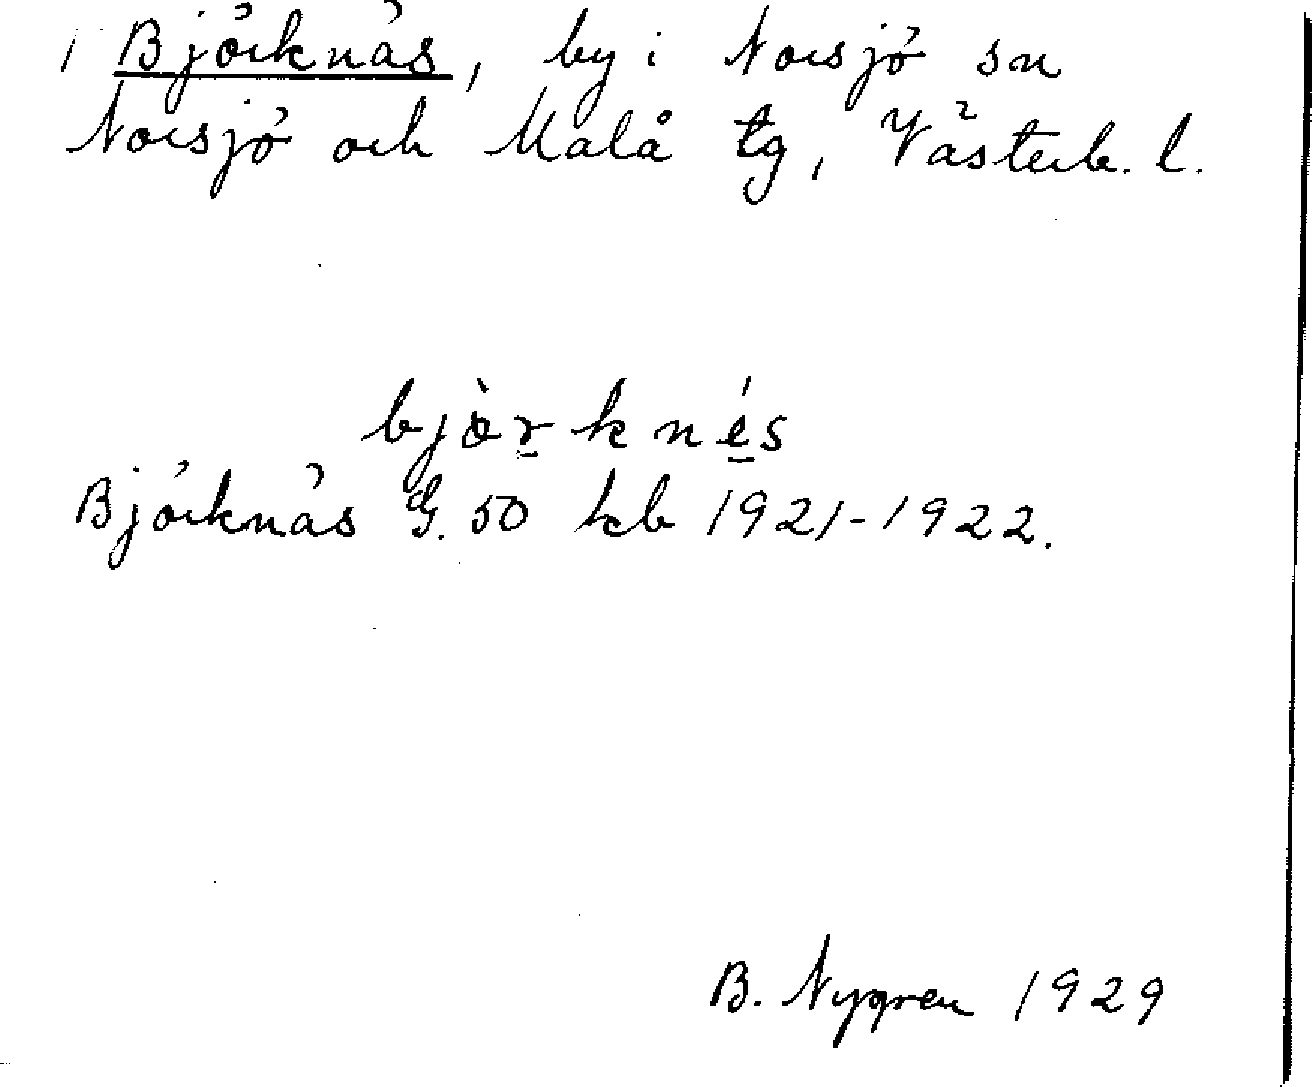 1 Björknäs, by i Norsjö sn
Norsjö och Malå tg, Västerb. l.
bjòr̲kné̲s
Björknäs G. 50 kb 1921-1922.
B. Nygren 1929